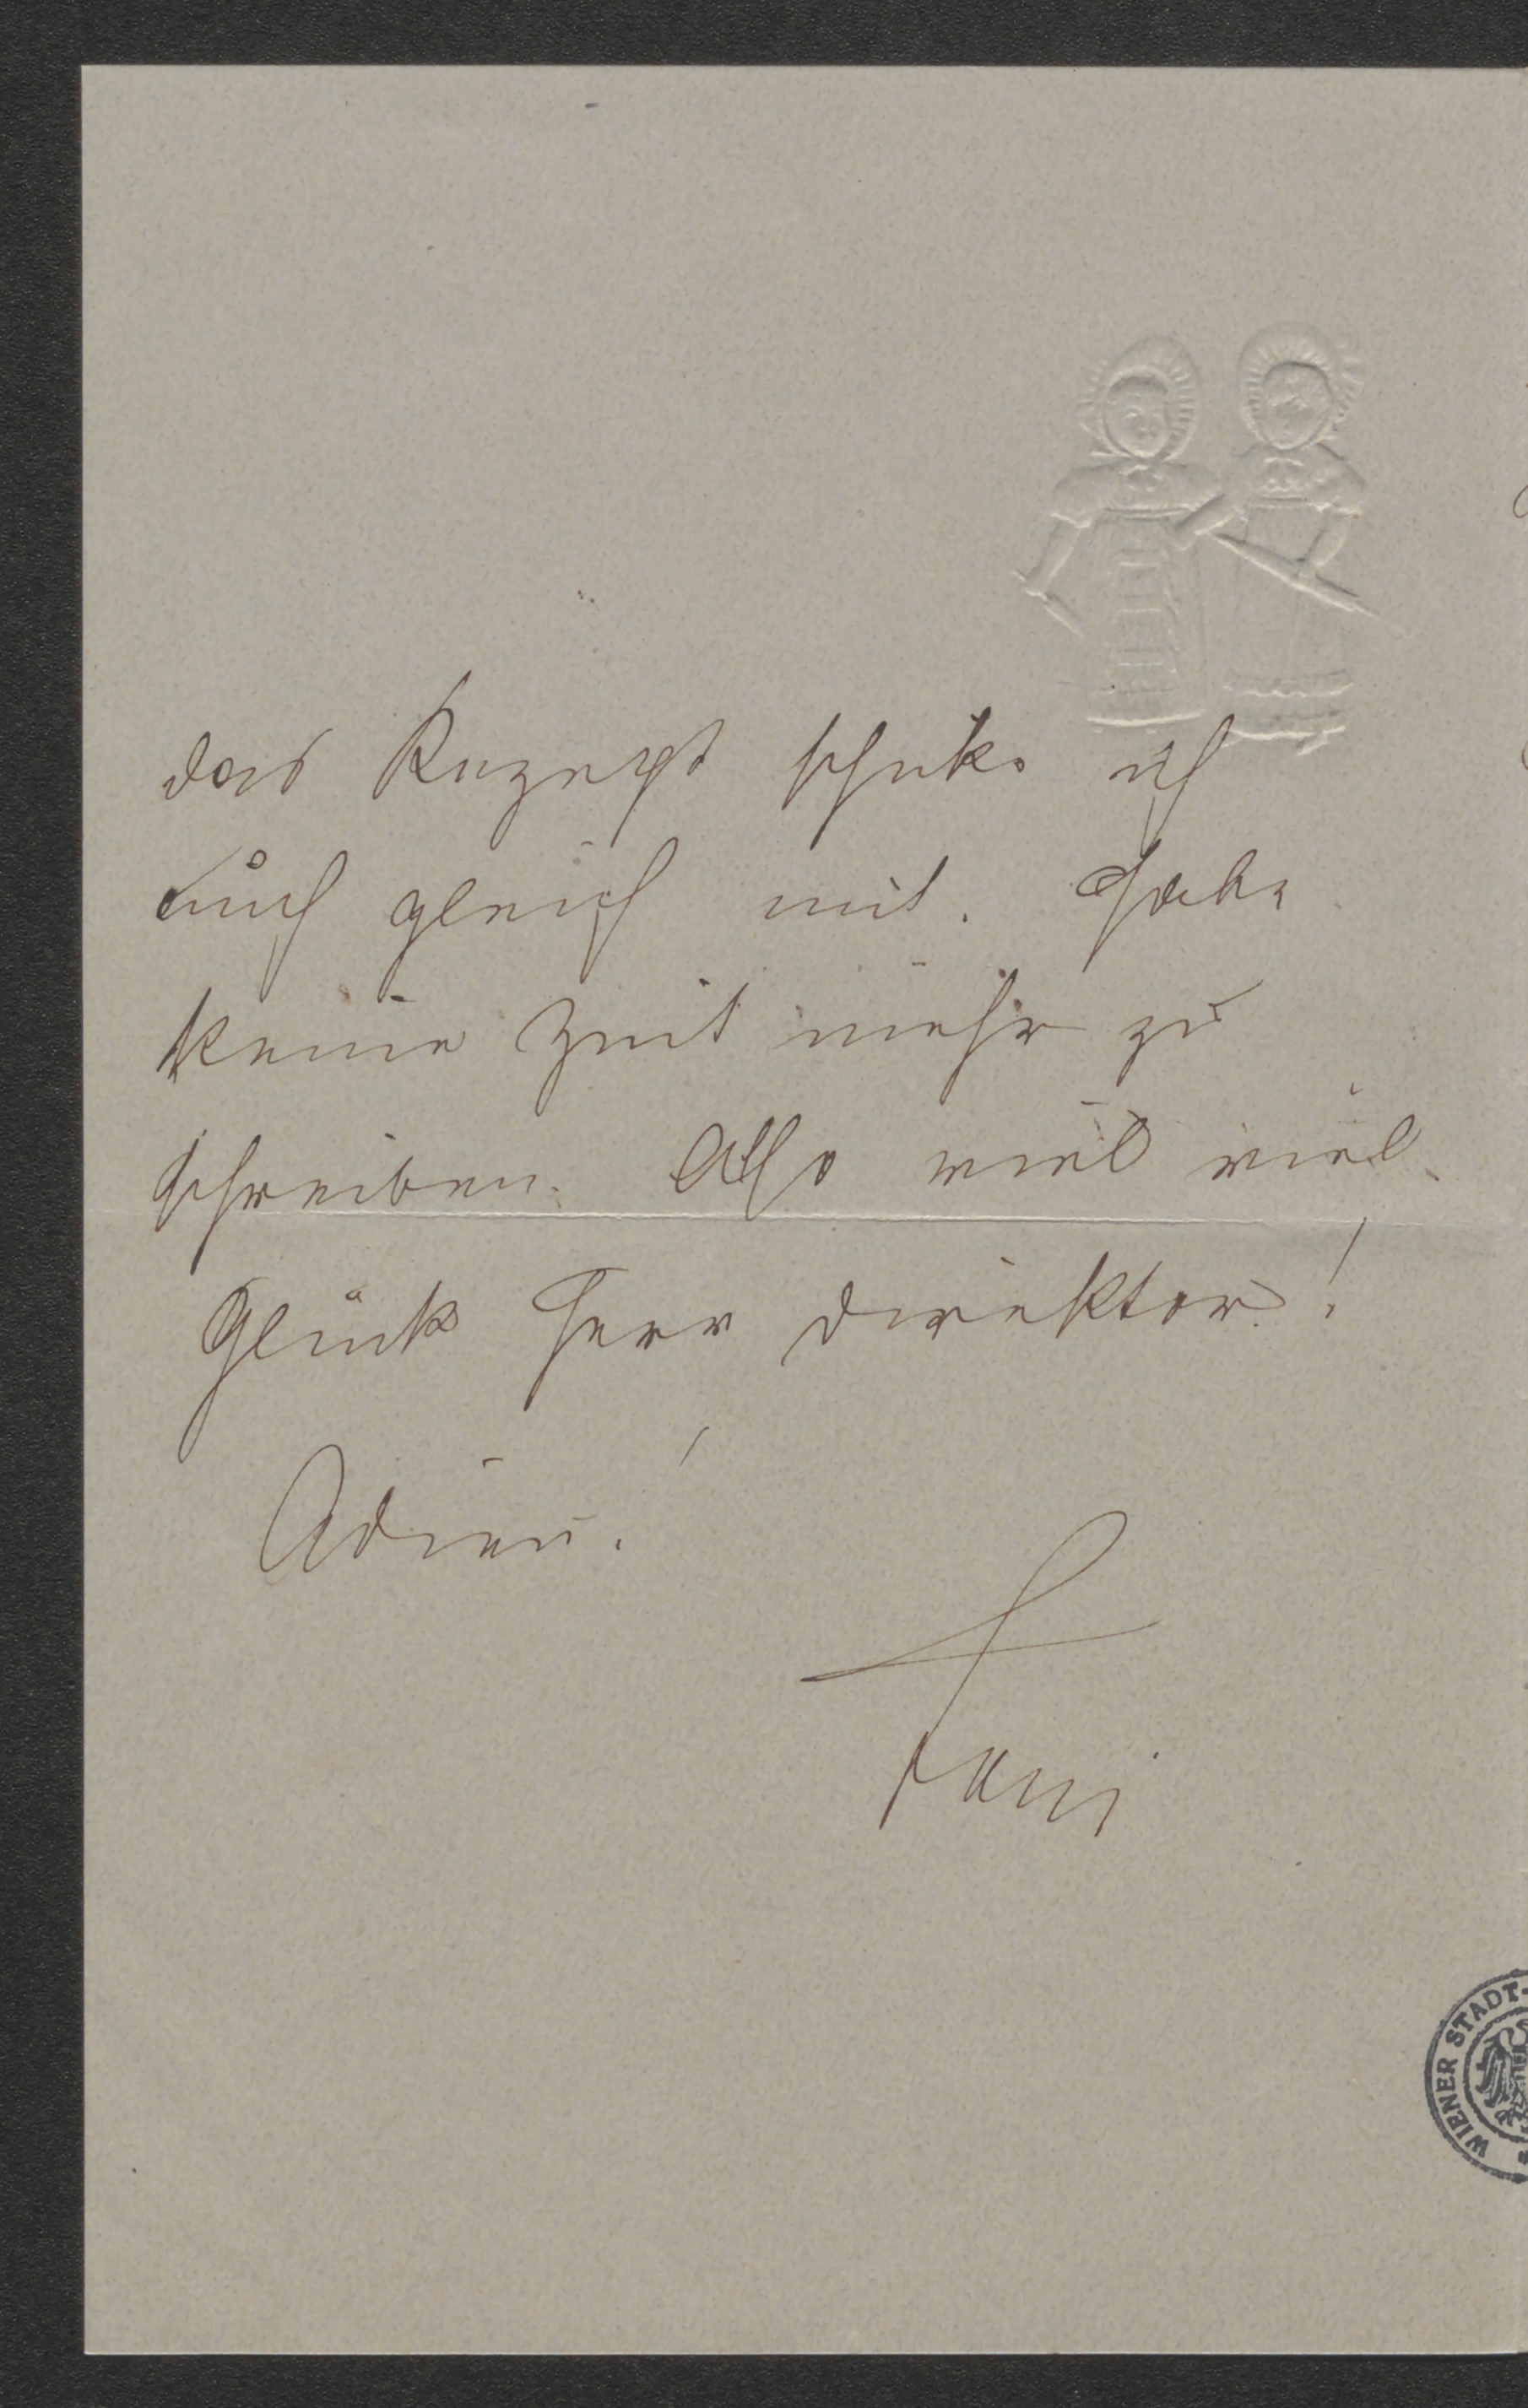 das Rezept schike ich
auch gleich mit. Habe
keine Zeit mehr zu
schreiben. Also viel viel
Glück Herr Direktor!
Adieu!
Fani
WIENER STADT-